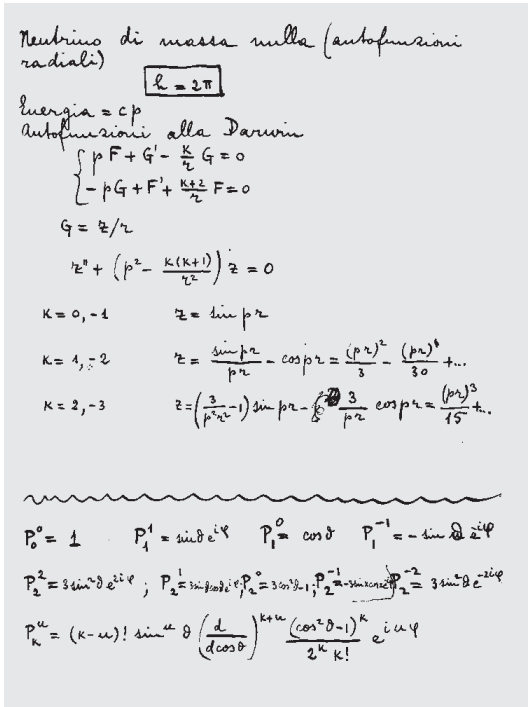 Neutrino di massa nulla (autofunzioni
radiali)
h = 2π
Energia = cp
Autofunzioni alla Darwin
{ pF + G' - k/r G = 0
- pG + F' + (k+2)/r F = 0
G = z/r
z'' + (p² - k(k+1)/r²) z = 0
k = 0, -1 z = sin pr
k = 1, -2 z = sin pr/pr - cos pr = (pr)²/3 - (pr)⁴/30 + ...
k = 2, -3 z = (3/p²r² - 1) sin pr - 3/pr cos pr = (pr)³/15 + ...
P₀⁰ = 1 P₁¹ = sinϑ e^{iφ} P₁⁰ = cosϑ P₁⁻¹ = - sin ϑ e^{-iφ}
P₂² = 3 sin²ϑ e^{2iφ} ; P₂¹ = 3 sinϑ cosϑ e^{iφ} ; P₂⁰ = 3cos²ϑ-1 ; P₂⁻¹ = -3 P₂⁻² = 3 sin²ϑ e^{-2iφ}
P_k^u = (k-u)! sin^u ϑ (d/dcosϑ)^{k+u} (cos²ϑ-1)^k/2^k k! e^{iuφ}